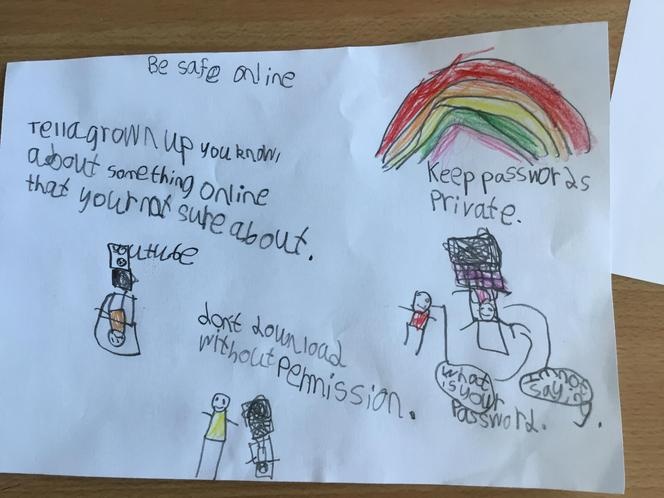 Be safe online
Tell a grown up you know,
about something online
that your not sure about.
Keep passwords
private.
dont download
without permission.
what
is your
password.
I'm not
saying